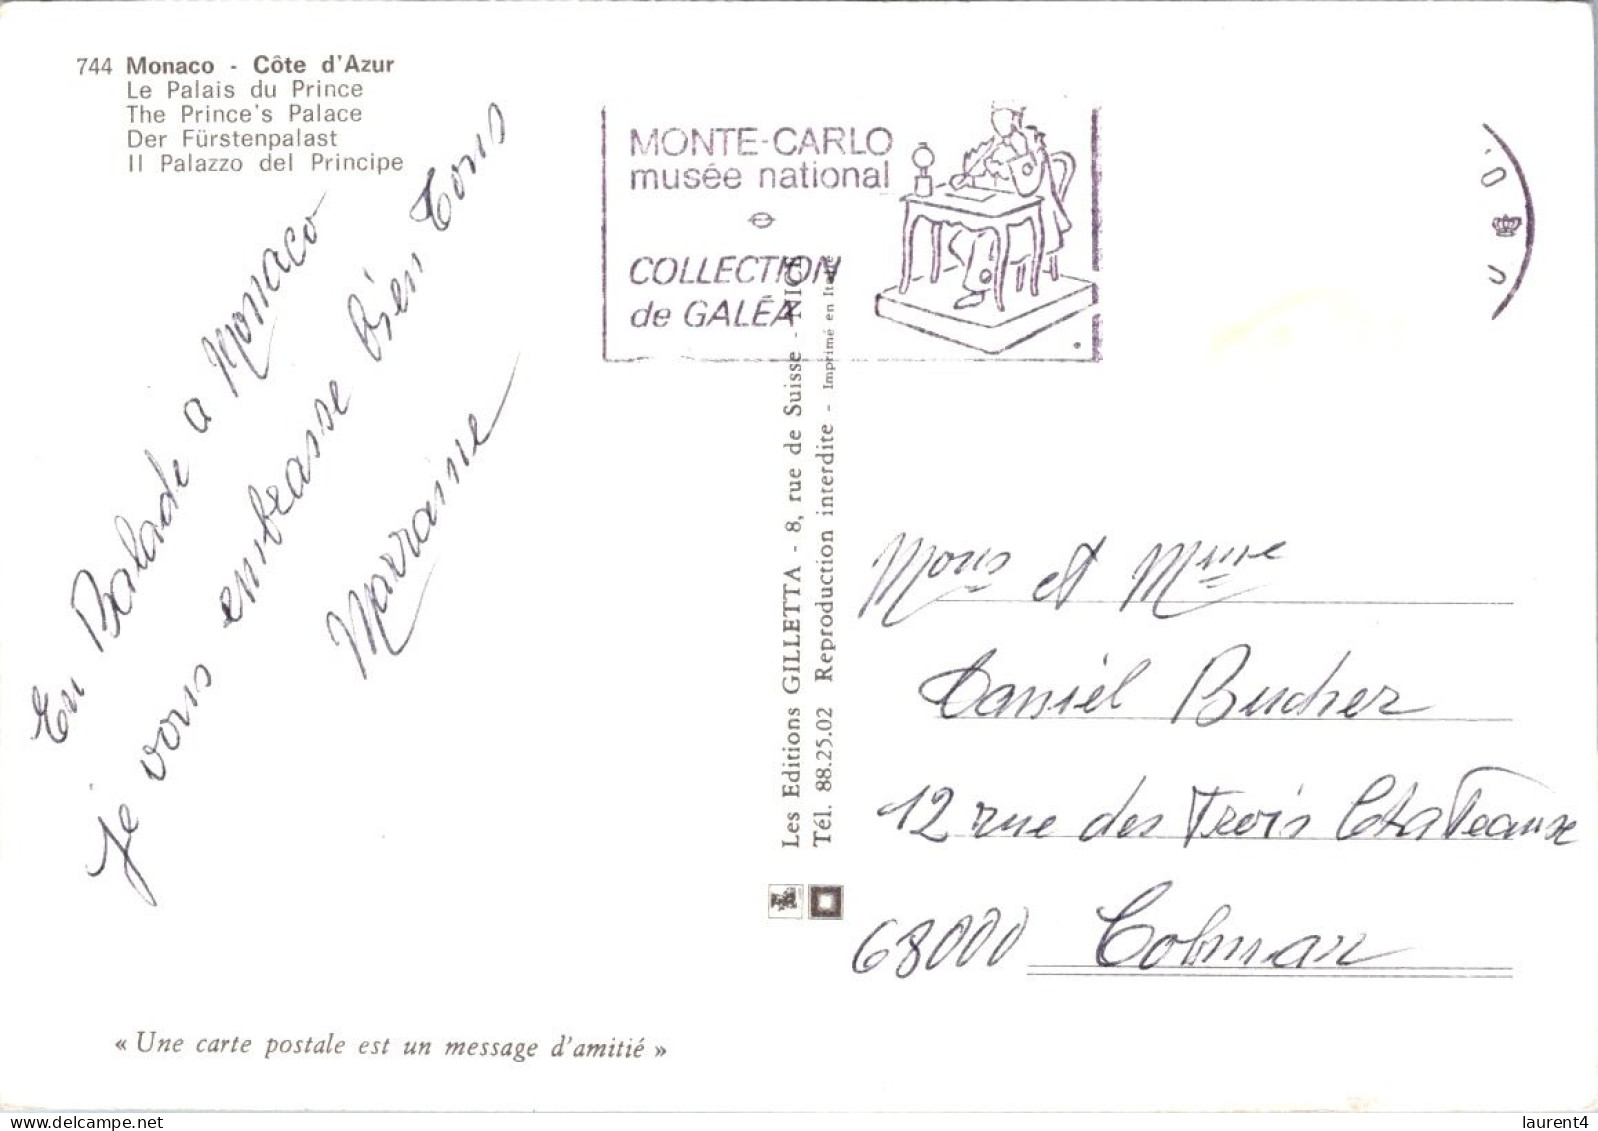 744 Monaco - Côte d'Azur
Le Palais du Prince
The Prince's Palace
Der Fürstenpalast
Il Palazzo del Principe
En Balade a Monaco
je vous embrasse bien tous
Marraine
« Une carte postale est un message d'amitié »
MONTE-CARLO
musée national
COLLECTION
de GALÉA
Les Editions GILLETTA - 8, rue de Suisse - NICE
Tél. 88.25.02 Reproduction interdite - Imprimé en Italie
Mons et Mme
Daniel Bucher
12 rue des Trois Chateaux
68000 Colmar
laurent4